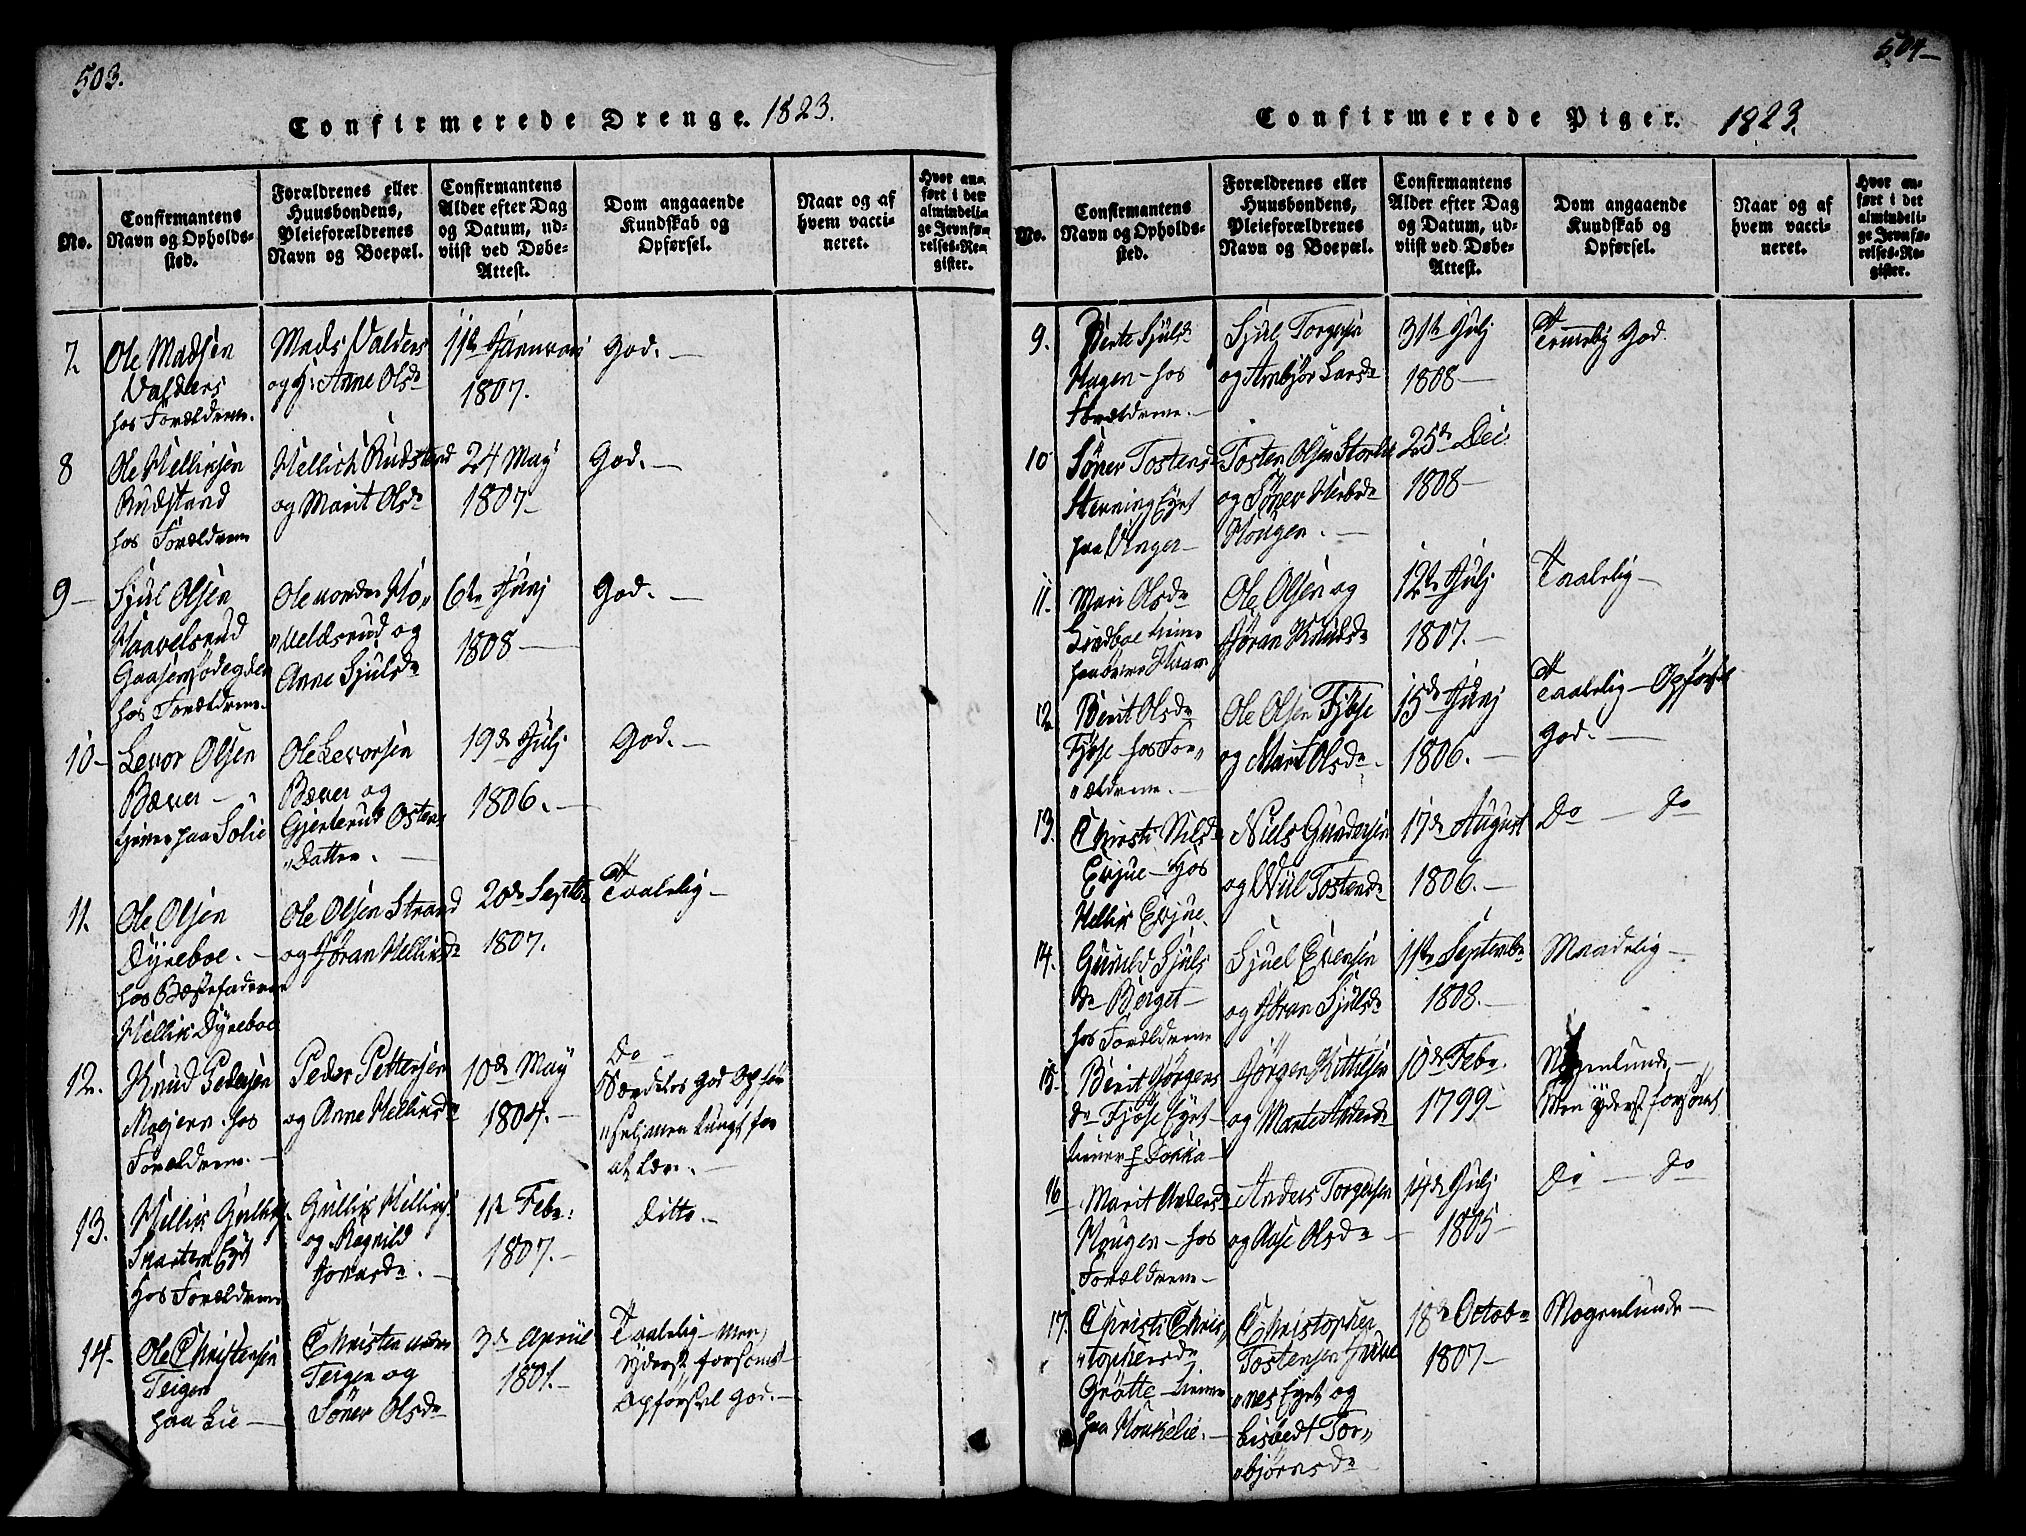 503.
Confirmerede Drenge. 1823.
No.
Confirmantens
Navn og Opholds-
sted.
Forældrenes eller
Huusbondens,
Pleieforældrenes
Navn og Boepæl.
Confirmantens
Alder efter Dag
og Datum, ud-
viist ved Døbe-
Attest.
Dom angaaende
Kundskab og
Opførsel.
Naar og af
hvem vacci-
neret.
Hvor an-
ført i det
almindeli-
ge Jevnfø-
relses-Re-
gister.
7
Ole Madsen
Valders
hos Forældrene.
Mads Valders
og H: Anne Olsdr
11te Januari
1807.
God. —
8
Ole Hellicsen
Rudstand
hos Forældrene
Hellich Rudstand
og Marit Olsdr
24 May
1807
God. —
9 —
Sjul Olsen
Haavelsrud
hos Forældrene.
Ole
og
Anne Sjulsdr
6te Junj
1808 —
God. —
10 —
Levor Olsen
Bæver —
paa Solie
Ole Levorsen
Bæver og
Gjertrud Osten
"datter. —
19de Julj
1806. —
God. —
11.
Ole Olsen
Dyreboe. —
hos Bestefaderen
Hellik Dyreboe
Ole Olsen Strand
og Jøran Helliksdr
20de Septbr
1807.
Taalelig —
12.
Knud Pedersen
Mogen hos
Forældrene. —
Peder Pettersen
og Anne Helliksdr
10de May
1804. —
Do
Særdeles God Opfør
"sel, men tungt for
at lære. —
13.
Hellik Gulliks.
Eyet
hos Forældrene
Gullik Helliks:
og Ragnild
Jonasdr. —
11te Febr:
1807. —
Ditto. —
14.
Ole Christensen
Teigen
paa Lie —
Christen
Teigen og
Søner Olsdr
3de Apriil
1801. —
Taalelig — Men
yderst forsømt —
Opførsel God. —
504 —
Confirmerede Piger. 1823.
No.
Confirmantens
Navn og Opholds-
sted.
Forældrenes eller
Huusbondens,
Pleieforældrenes
Navn og Boepæl.
Confirmantens
Alder efter Dag
og Datum, ud-
viist ved Døbe-
Attest.
Dom angaaende
Kundskab og
Opførsel.
Naar og af
hvem vacci-
neret.
Hvor an-
ført i det
almindeli-
ge Jevnfø-
relses-Re-
gister.
9.
Berte Sjulsdr
Hagen — hos
Forældrene. —
Sjul Torgersen
og Ambjør Larsdr
31te Julj
1808 —
Temmelig God.
10
Søner Tostensdr
Eyet
paa Vinger —
Tosten Olsen
og Søner
Hougen. —
25de Dec:
1808 —
11.
Mari Olsdr
Lindboe
Ole Olsen og
Jøran Knudsdr
12te Julj
1807. —
Taalelig —
12.
Berit Olsdr
Fjøse hos For"
"ældrene. —
Ole Olsen Fjøse
og Marit Olsdr.
15de Junj
1806. —
Taalelig — Opførsel
God. —
13.
Christi Nilsdr
Evjue — hos
Hellik Evjue.
Niels Gundersen
og Tostensdr
17de August
1806. —
Do — Do
14.
Gunild Sjuls
dr Berget —
hos Forældrene
Sjuel Evensen
og Jøran Sjulsdr
11te Septembr
1808. —
Maadelig —
15.
Berit Jørgens
dr Fjøse Eyet —
tiener p Dokka —
Jørgen Kittilsen
og Marte Andersdr
10de Febr.
1799 —
Nogenlunde, —
Men yderst forsømt
16
Marit Andersdr
Hougen — hos
Forældrene —
Anders Torgersen
og Aase Olsdr —
14de Julj
1805 —
Do — Do
17.
Christi Chris"
"tophersdr
Grøtte —
paa —
Christopher
Tostensen
"nes Eyet og
Lisbedt Tor"
"bjørnsdr —
18de Octobr
1807 —
Nogenlunde —